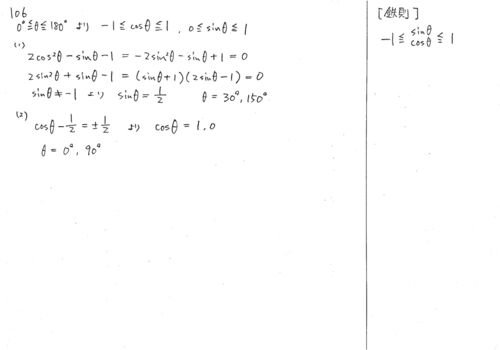 106
0°≦θ≦180° より -1≦cosθ≦1 , 0≦sinθ≦1
(1)
2cos²θ-sinθ-1 = -2sin²θ-sinθ+1 = 0
2sin²θ+sinθ-1 = (sinθ+1)(2sinθ-1) = 0
sinθ≠-1 より sinθ = 1/2 θ = 30°, 150°
(2)
cosθ - 1/2 = ± 1/2 より cosθ = 1, 0
θ = 0°, 90°
[鉄則]
-1 ≦ sinθ cosθ ≦ 1